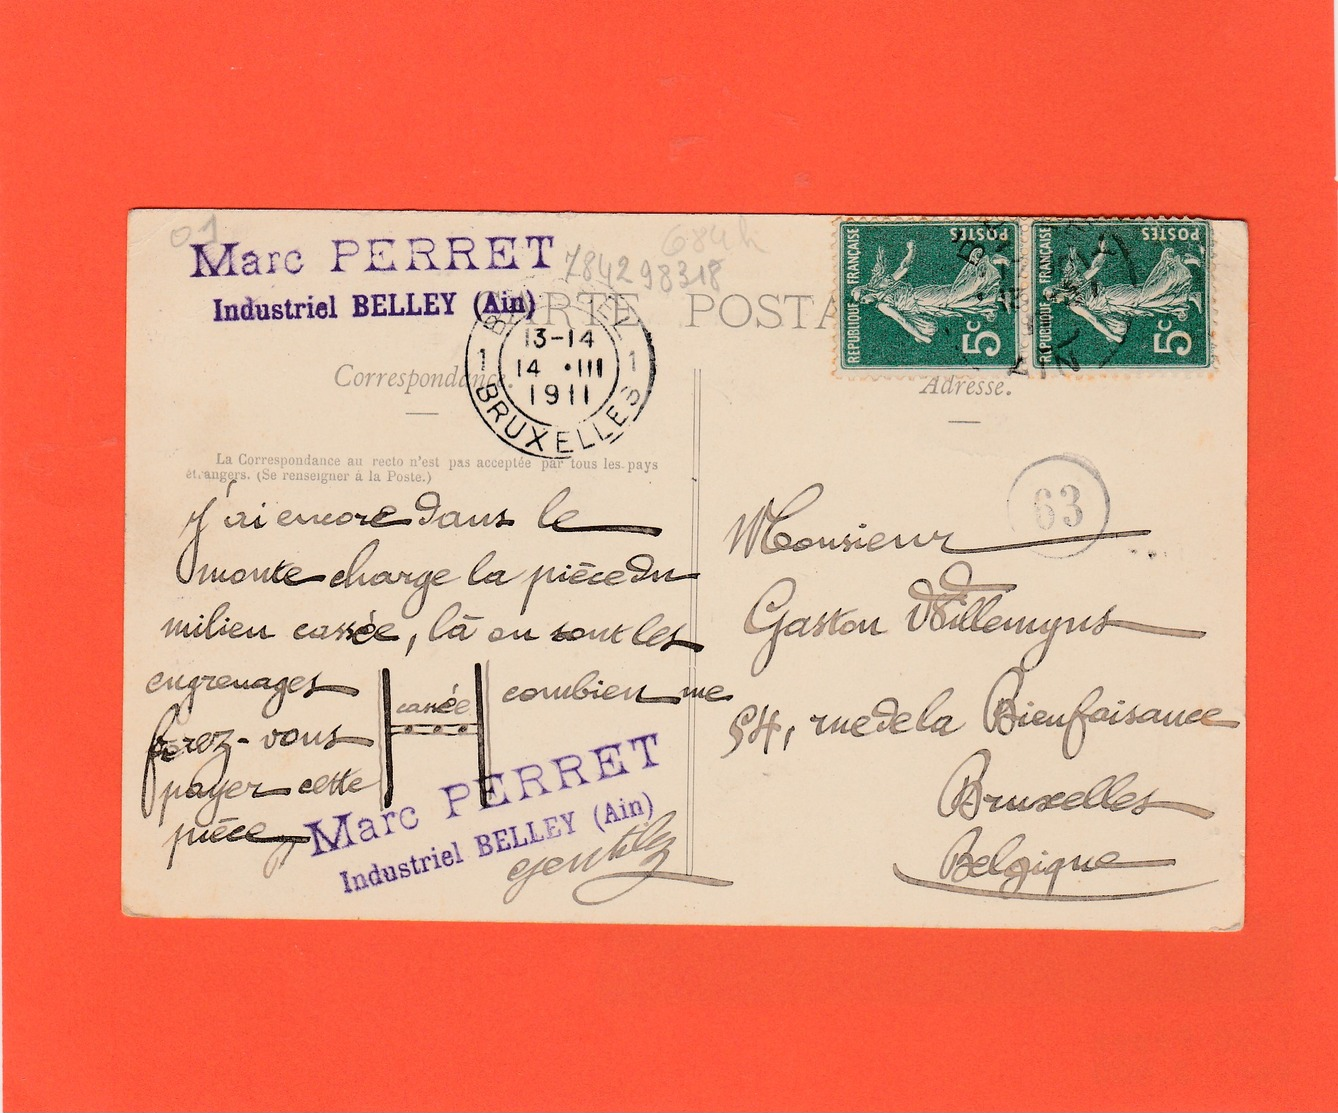 01
Marc PERRET
Industriel BELLEY (Ain)
684k
784298318
CARTE POSTA
13-14
1 14 •III 1
1911
BRUXELLES
RÉPUBLIQUE FRANÇAISE
POSTES
5c
RÉPUBLIQUE FRANÇAISE
POSTES
5c
Correspondance.
Adresse.
La Correspondance au recto n'est pas acceptée par tous les pays
étrangers. (Se renseigner à la Poste.)
63
J'ai encore dans le
monte charge la pièce du
milieu cassée, là ou sont les
engrenages
cassée
combien me
ferez-vous
payer cette
pièce
Marc PERRET
Industriel BELLEY (Ain)
Monsieur
Gaston Willemyns
54, rue de la Bienfaisance
Bruxelles
Belgique